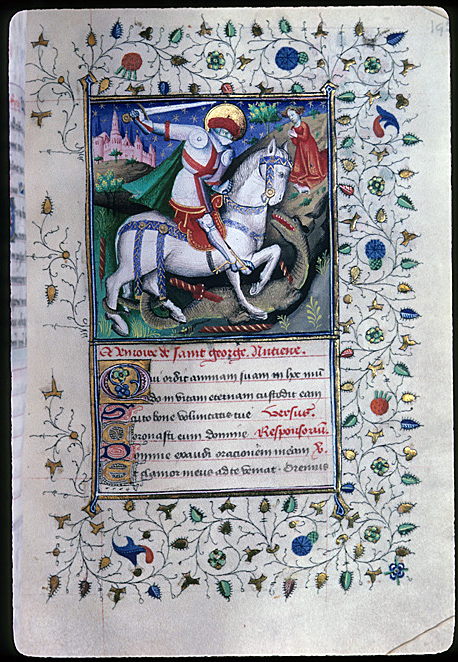 memoire de saint george. Antiene.
Qui odit animam suam in hoc mu
do in vitam eternam custodit eam
Scuto bone voluntatis tue Versus.
coronasti eum domine Responsorium.
Domine exaudi orationem meam
Et clamor meus ad te veniat. Oremus